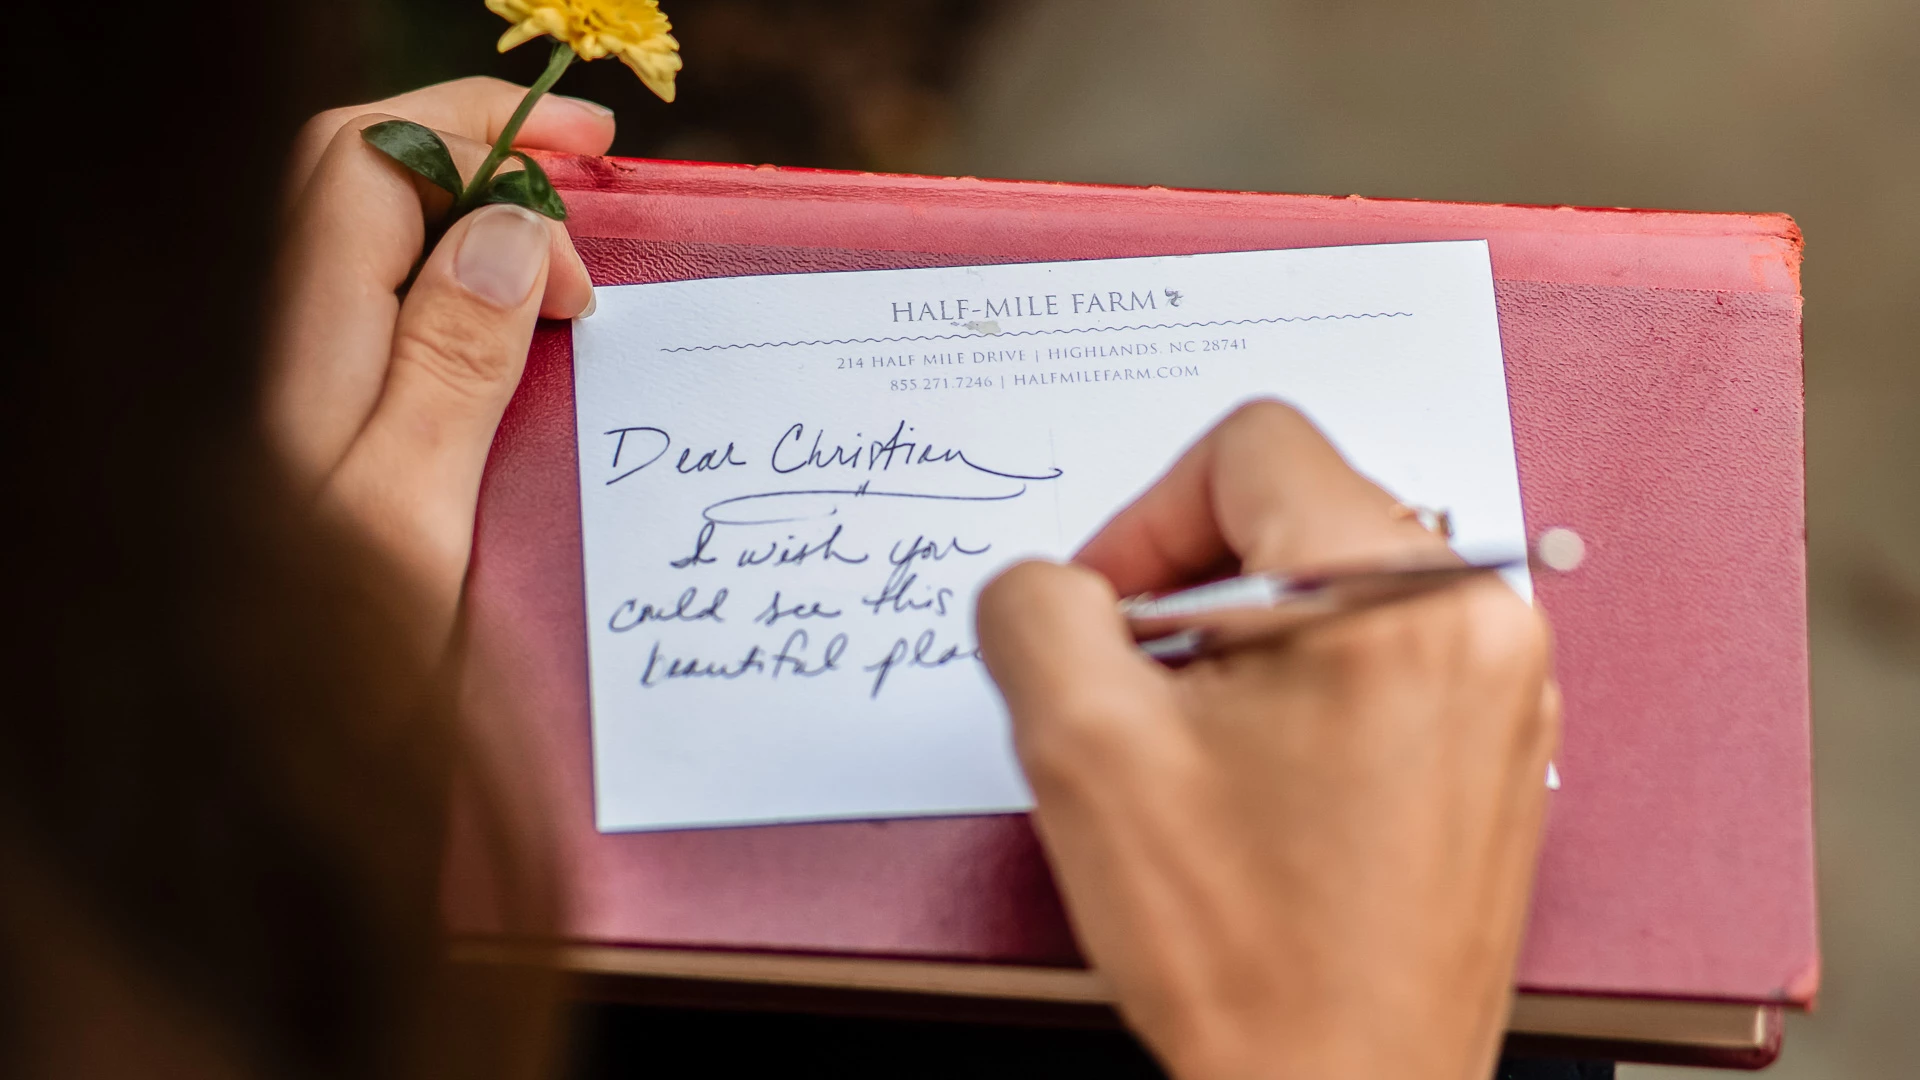 HALF-MILE FARM
214 HALF MILE DRIVE | HIGHLANDS, NC 28741
855.271.7246 | HALFMILEFARM.COM
Dear Christian
I wish you
could see this
beautiful